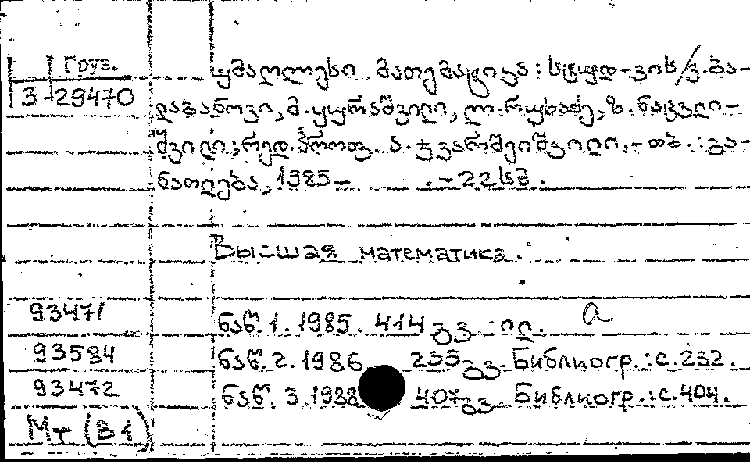 Груз.
3-29470
უმაღლესი მათემატიკა: სტუდ-ვის/ვ. გა-
დაბანოვი, მ. ყურაშვილი, ლ. რუხაძე, ზ. ნაცვლი-
შვილი; რედ. პროფ. ა. ჯვარშეიშვილი. - თბ.: გა-
ნათლება, 1985- . - 22 სმ.
Высшая математика.
93471 ნაწ. 1. 1985. 414 გვ. ილ. a
93584 ნაწ. 2. 1986. 235 გვ. Библиогр.: с. 232.
93472 ნაწ. 3. 1988 407 გვ. Библиогр.: с. 404.
Мт (В1)